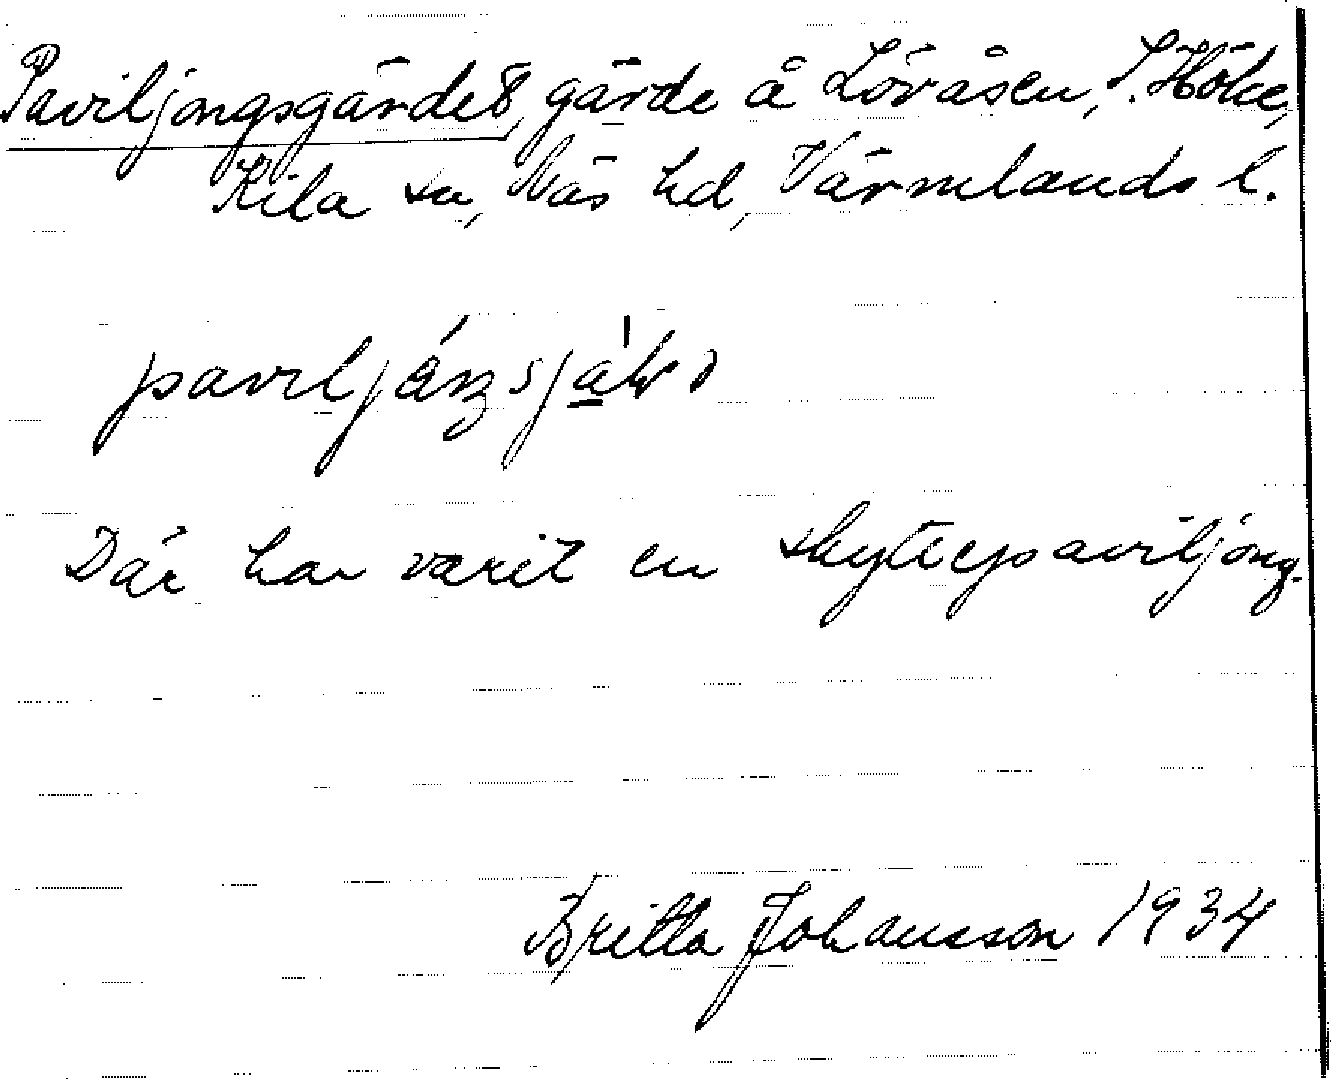 Paviljongsgärdet, gärde å Lövåsen, S. Höke,
Kila sn, Näs hd, Värmlands l.
Där har varit en skyttepaviljong.
Britta Johansson 1934